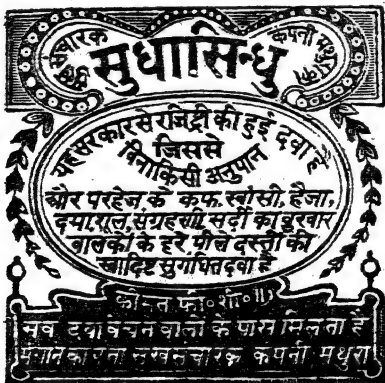 सुख संचारक कंपनी मथुरा का
सुधासिन्धु
यह सरकार से रजिट्री की हुई दवा है
जिससे
बिना किसी अनुपान
और परहेज के कफ, खांसी, हैजा,
दमा, शूल, संग्रहणी, सर्दी का बुखार
बालकों के हरे पीले दस्तों की
स्वादिष्ट सुगंधित दवा है
कीमत फी॰शी॰॥)
सब दवा बेचने वालों के पास मिलता है
मंगाने का पता सुख संचारक कंपनी मथुरा